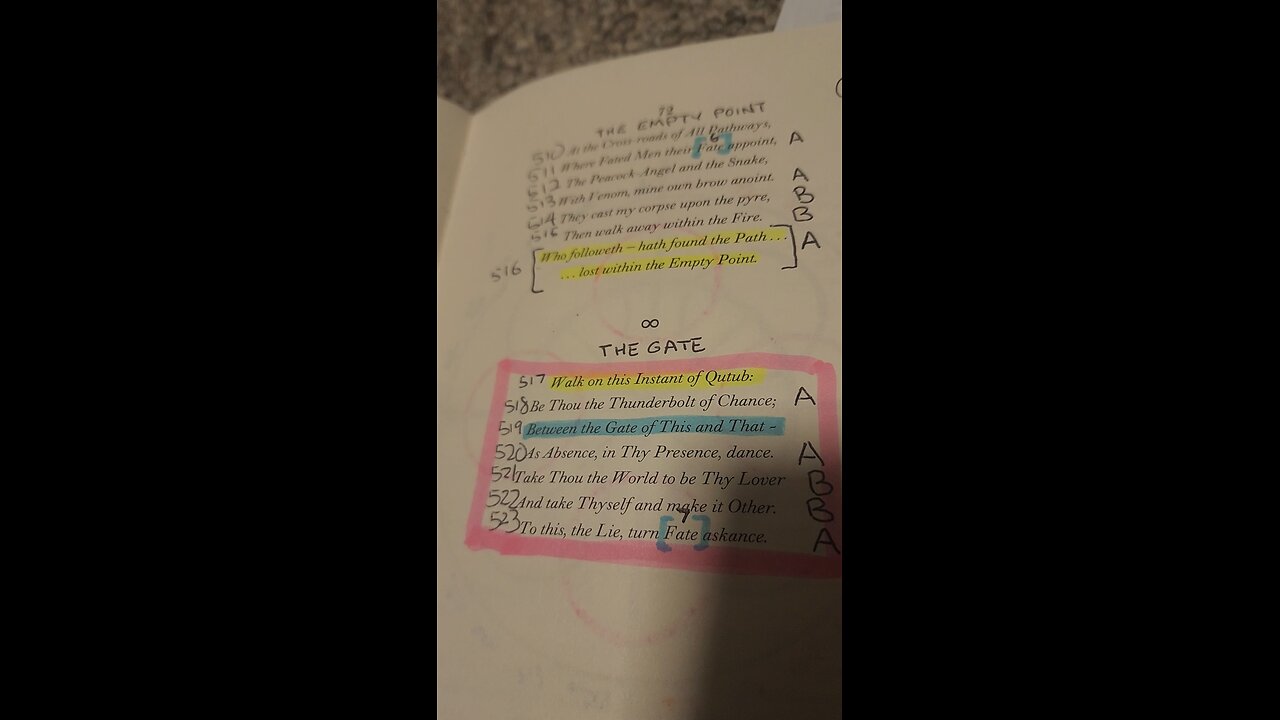 72
THE EMPTY POINT
510 At the Cross-roads of All Pathways,
511 Where Fated Men their [Fate] appoint, A
6
512 The Peacock-Angel and the Snake,
513 With Venom, mine own brow anoint. A
514 They cast my corpse upon the pyre, B
515 Then walk away within the Fire. B
516 [Who followeth – hath found the Path . . . ] A
. . . lost within the Empty Point.
∞
THE GATE
517 Walk on this Instant of Qutub:
518 Be Thou the Thunderbolt of Chance; A
519 Between the Gate of This and That ~
520 As Absence, in Thy Presence, dance. A
521 Take Thou the World to be Thy Lover B
522 And take Thyself and make it Other. B
7
523 To this, the Lie, turn [Fate] askance. A